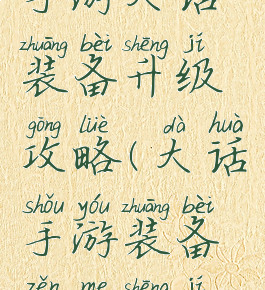 手游大话
zhuāng bèi shēng jí
装备升级
gōng lüè dà huà
攻略(大话
shǒu yóu zhuāng bèi
手游装备
zěn me shēng jí